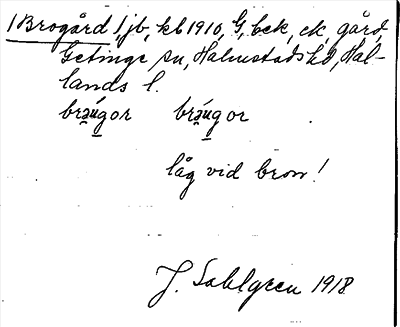 1 Brogård 1, jb, kb 1910, G, bek, ek, gård,
Getinge sn, Halmstads hd, Hal-
lands l.
bräúgor bräúgor
låg vid bron!
J. Sahlgren 1918